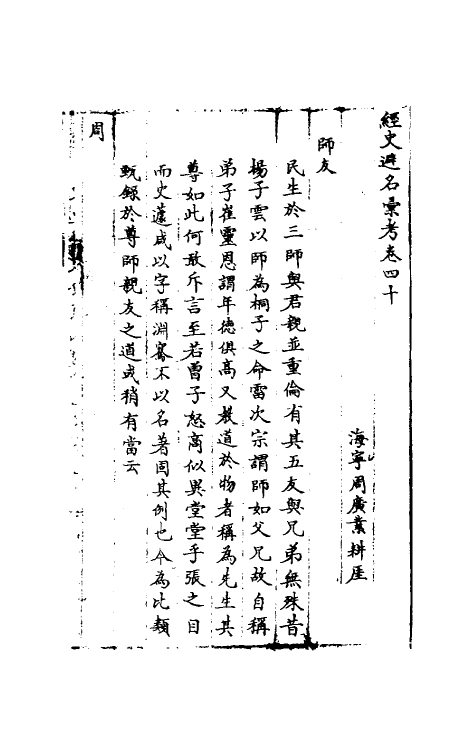 經史避名彙考卷四十
海寧周廣業耕厓
師友
民生於三師與君親並重倫有其五友與兄弟無殊昔
楊子雲以師為桐子之命雷次宗謂師如父兄故自稱
弟子崔靈恩謂年德俱高又教道於物者稱為先生其
尊如此何敢斥言至若曾子怒商似異堂堂乎張之目
而史遷咸以字稱淵騫不以名著固其例也今為比類
甄錄於尊師親友之道或稍有當云
周